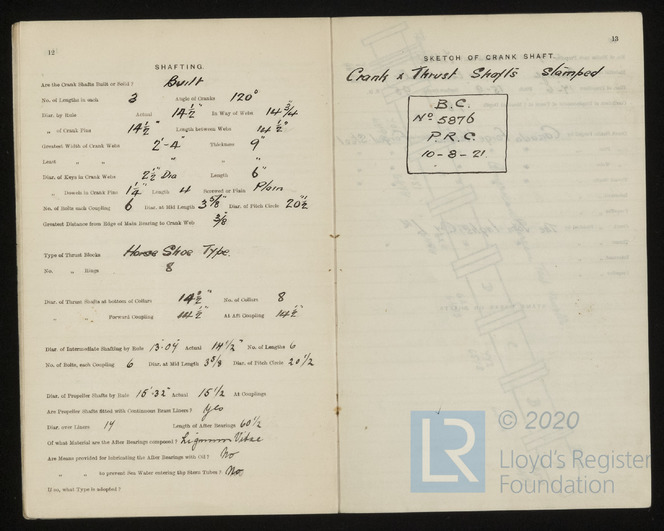 12
SHAFTING.
Are the Crank Shafts Built or Solid? Built
No. of Lengths in each 3 Angle of Cranks 120°
Diar. by Rule Actual 14½" In Way of Webs 14¾
" of Crank Pins 14½" Length between Webs 14½"
Greatest Width of Crank Webs 2'-4" Thickness 9"
Least " " " "
Diar. of Keys in Crank Webs 2½" Dia Length 6"
" Dowels in Crank Pins 1¼" Length 4 Screwed or Plain Plain
No. of Bolts each Coupling 6 Diar. at Mid Length 3⅝" Diar. of Pitch Circle 20½"
Greatest Distance from Edge of Main Bearing to Crank Web ⅜"
Type of Thrust Blocks Horse Shoe Type.
No. " Rings 8
Diar. of Thrust Shafts at bottom of Collars 14½" No. of Collars 8
" " Forward Coupling 14½" At Aft Coupling 14½"
Diar. of Intermediate Shafting by Rule 13.04" Actual 14½" No. of Lengths 6
No. of Bolts, each Coupling 6 Diar. at Mid Length 3⅝ Diar. of Pitch Circle 20½
Diar. of Propeller Shafts by Rule 15.32" Actual 15½ At Couplings
Are Propeller Shafts fitted with Continuous Brass Liners? Yes
Diar. over Liners 17 Length of After Bearings 60½
Of what Material are the After Bearings composed? Lignum Vitae
Are Means provided for lubricating the After Bearings with Oil? No
" " to prevent Sea Water entering the Stern Tubes? No
If so, what Type is adopted?
13
SKETCH OF CRANK SHAFT.
Crank & Thrust Shafts Stamped
B.C.
No 5876
P.R.C.
10-8-21.
LR
© 2020
Lloyd's Register
Foundation